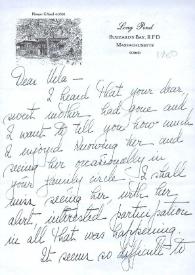 Long Pond
Buzzards Bay, R.F.D.
Massachusetts
Dear Vela –
I heard that your dear
sweet mother had gone and
I want to tell you how much
I enjoyed knowing her and
seeing her occasionally in
your family circle – I shall
miss seeing her with her
alert, interested participation
in all that was happening.
It seems so difficult to